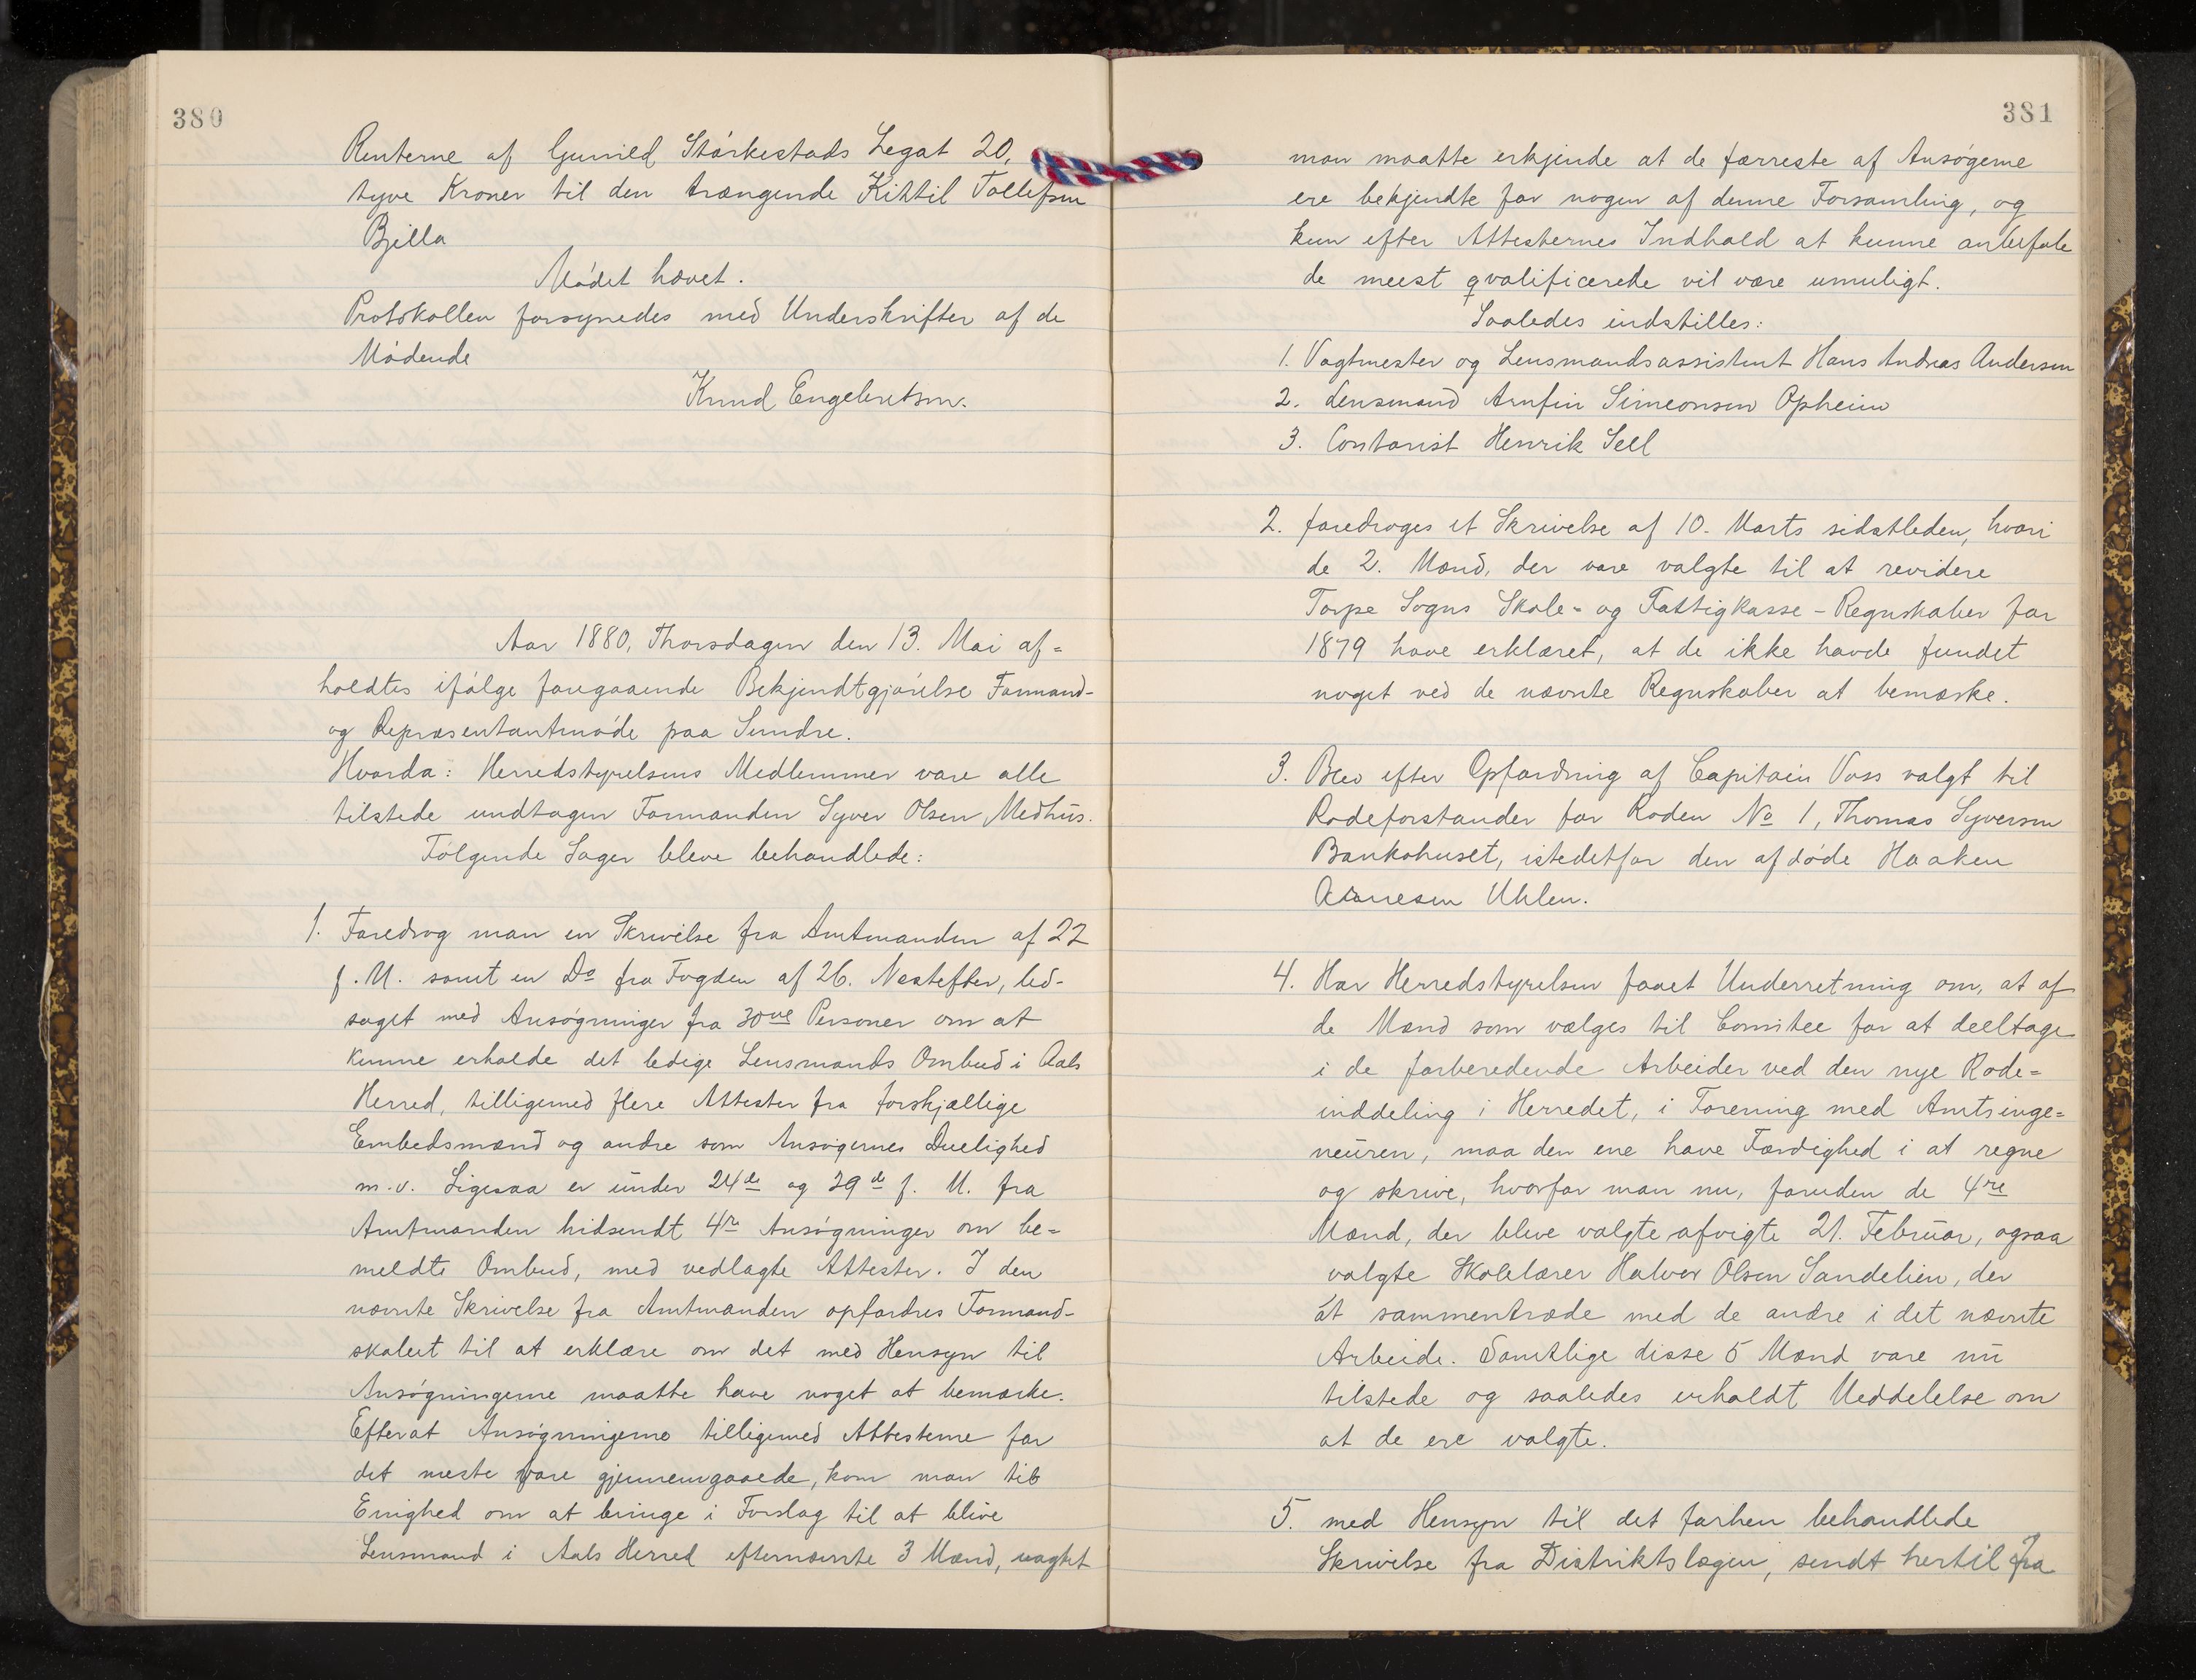 380
Renterne af Gunild Stårkestads Legat 20,
tyve Kroner til den trængende Kittil Tollefsen
Bjella
Mødet hævet.
Protokollen forsynedes med Underskrifter af de
Mødende
Knud Engebretsen.
Aar 1880, Thorsdagen den 13. Mai af=
holdtes ifølge foregaaende Bekjendtgjørelse Formand-
og Repræsentantmøde paa Sundre.
Hvorda: Herredstyrelsens Medlemmer vare alle
tilstede undtagen Formanden Syver Olsen Medhus.
Følgende Sager bleve behandlede:
1. Foredrog man en Skrivelse fra Amtmanden af 22
f. M. samt en Do fra Fogden af 26. Næstefter, led-
saget med Ansøgninger fra 30ve Personer om at
kunne erholde det ledige Lensmands Ombud i Aals
Herred, tilligemed flere Attester fra forskjællige
Embedsmænd og andre som Ansøgernes Duelighed
m.v. Ligesaa er under 24de og 29de f. M. fra
Amtmanden hidsendt 4re Ansøgninger om be=
meldte Ombud, med vedlagte Attester. I den
nævnte Skrivelse fra Amtmanden opfordres Formand-
skabet til at erklære om det med Hensyn til
Ansøgningerne maatte have noget at bemærke.
Efterat Ansøgningerne tilligemed Attesterne for
det meste vare gjennemgaaede, kom man til
Enighed om at bringe i Forslag til at blive
Lensmand i Aals Herred efternævnte 3 Mænd, uagtet
381
man maatte erkjende at de færreste af Ansøgerne
ere bekjendte for nogen af denne Forsamling, og
kun efter Attesternes Indhold at kunne anbefale
de meest qvalificerede vil være umuligt.
Saaledes indstilles:
1. Vagtmester og Lensmandsassistent Hans Andreas Andersen
2. Lensmand Arnfin Simeonsen Opheim
3. Contorist Henrik Sell
2. foredroges et Skrivelse af 10. Marts sidstleden, hvori
de 2. Mænd, der vare valgte til at revidere
Torpe Sogns Skole- og Fattigkasse-Regnskaber for
1879 have erklæret, at de ikke havde fundet
noget ved de nævnte Regnskaber at bemærke.
3. Blev efter Opfordring af Capitain Voss valgt til
Rodeforstander for Roden No 1, Thomas Syversen
Bankohuset, istedetfor den afdøde Haaken
Arnesen Uhlen.
4. Har Herredstyrelsen faaet Underretning om, at af
de Mænd som vælges til Comitee for at deeltage
i de forberedende Arbeider ved den nye Rode=
inddeling i Herredet, i Forening med Amtsinge=
neuren, maa den ene have Færdighed i at regne
og skrive, hvorfor man nu, foruden de 4re
Mænd, der bleve valgte afvigte 21. Februar, ogsaa
valgte Skolelærer Halvor Olsen Sandelien, der
at sammentræde med de andre i det nævnte
Arbeide. Samtlige disse 5 Mænd vare nu
tilstede og saaledes erholdt Meddelelse om
at de ere valgte.
5. med Hensyn til det forhen behandlede
Skrivelse fra Distriktslægen, sendt hertil fra